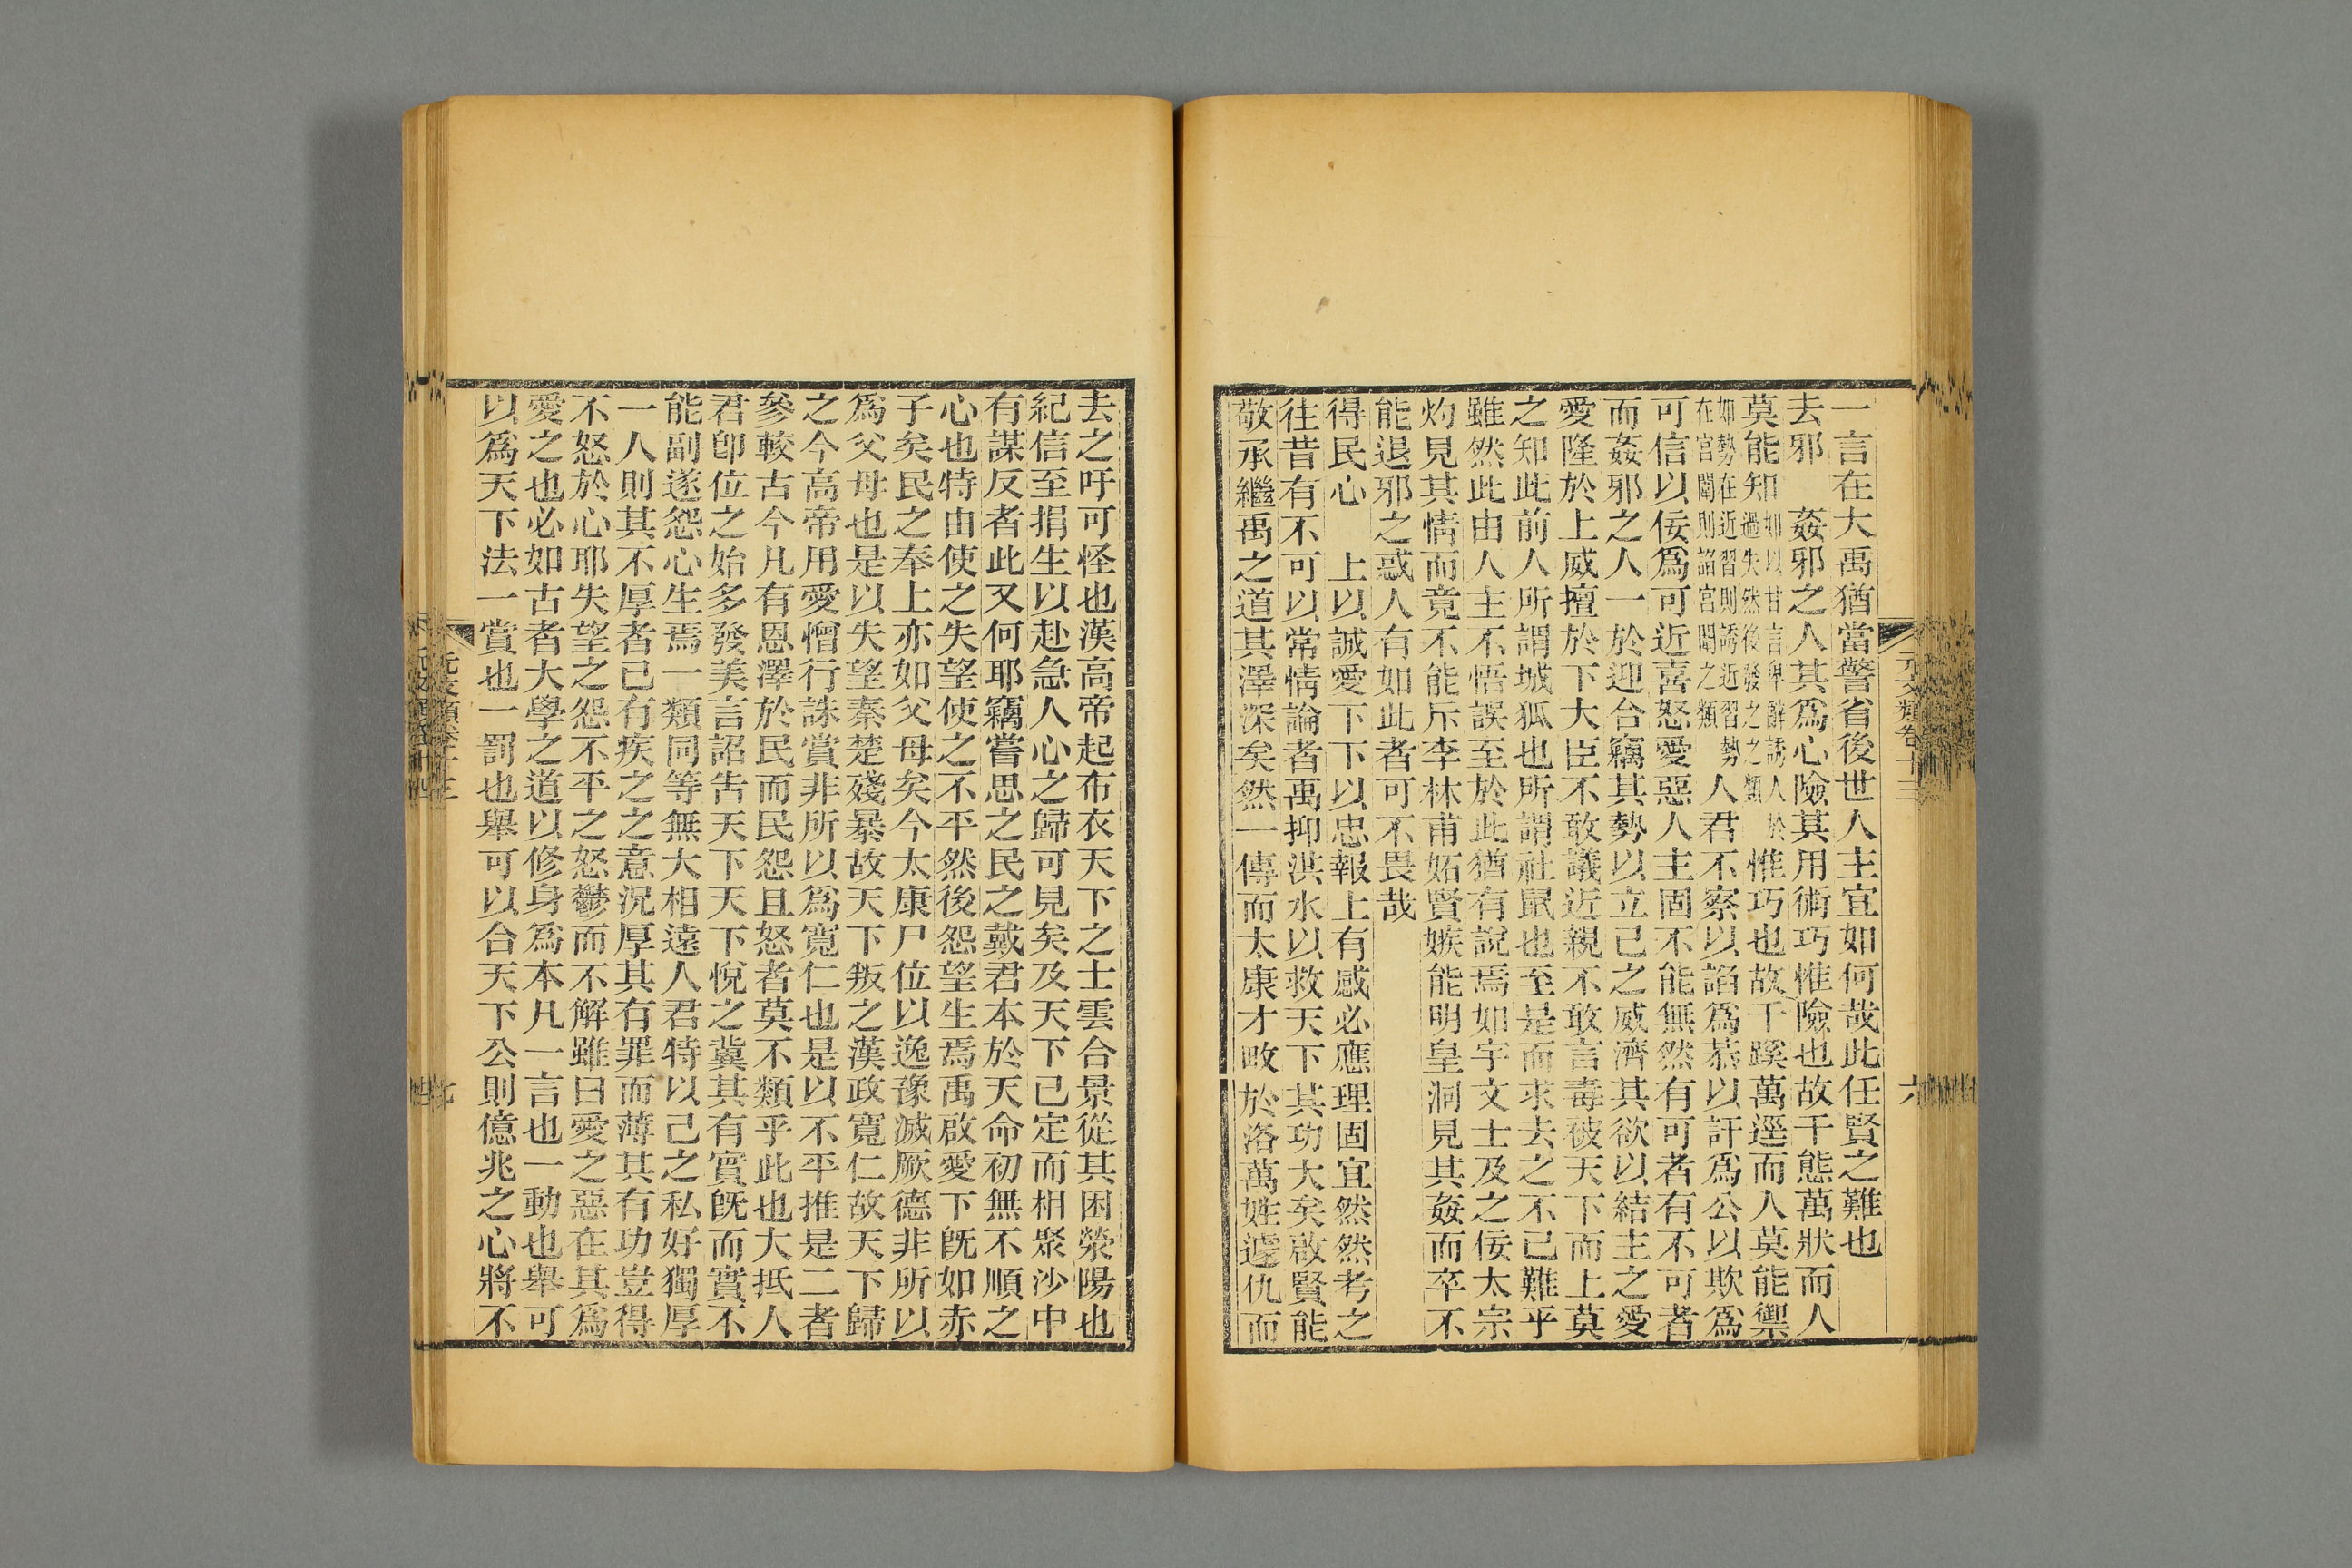 一言在大禹猶當警省後世人主宜如何哉此任賢之難也
去邪　姦邪之人其爲心險其用術巧惟險也故千態萬狀而人
莫能知如以甘言卑辭誘人於過失然後發之之類惟巧也故千蹊萬逕而人莫能禦
如勢在近習則誘近習勢在宮闈則諂宮闈之類人君不察以諂爲恭以訐爲公以欺爲
可信以佞爲可近喜怒愛惡人主固不能無然有可者有不可者
而姦邪之人一於迎合竊其勢以立己之威濟其欲以結主之愛
愛隆於上威擅於下大臣不敢議近親不敢言毒被天下而上莫
之知此前人所謂城狐也所謂社鼠也至是而求去之不已難乎
雖然此由人主不悟誤至於此猶有說焉如宇文士及之佞太宗
灼見其情而竟不能斥李林甫妬賢嫉能明皇洞見其姦而卒不
能退邪之惑人有如此者可不畏哉
得民心　上以誠愛下下以忠報上有感必應理固宜然然考之
往昔有不可以常情論者禹抑洪水以救天下其功大矣啟賢能
敬承繼禹之道其澤深矣然一傳而太康才畋於洛萬姓遽仇而
元文類卷十三
六
去之吁可怪也漢高帝起布衣天下之士雲合景從其困滎陽也
紀信至捐生以赴急人心之歸可見矣及天下已定而相聚沙中
有謀反者此又何耶竊嘗思之民之戴君本於天命初無不順之
心也特由使之失望使之不平然後怨望生焉禹啟愛下旣如赤
子矣民之奉上亦如父母矣今太康尸位以逸豫滅厥德非所以
爲父母也是以失望秦楚殘暴故天下叛之漢政寬仁故天下歸
之今高帝用愛憎行誅賞非所以爲寬仁也是以不平推是二者
參較古今凡有恩澤於民而民怨且怒者莫不類乎此也大抵人
君卽位之始多發美言詔告天下天下悅之冀其有實旣而實不
能副遂怨心生焉一類同等無大相遠人君特以己之私好獨厚
一人則其不厚者已有疾之之意況厚其有罪而薄其有功豈得
不怒於心耶失望之怨不平之怒鬱而不解雖曰愛之惡在其爲
愛之也必如古者大學之道以修身爲本凡一言也一動也舉可
以爲天下法一賞也一罰也舉可以合天下公則億兆之心將不